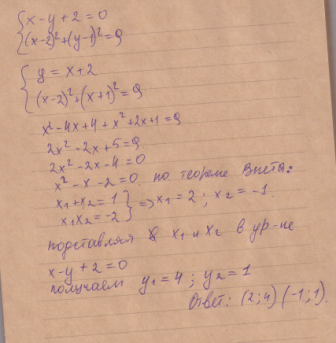 x-y+2=0
(x-2)²+(y-1)²=9
y=x+2
(x-2)²+(x+1)²=9
x²-4x+4+x²+2x+1=9
2x²-2x+5=9
2x²-2x-4=0
x²-x-2=0 по теореме Виета:
x₁+x₂=1
x₁x₂=-2 => x₁=2; x₂=-1.
подставляя в x₁ и x₂ в ур-не
x-y+2=0
получаем y₁=4; y₂=1
Ответ: (2;4) (-1;1).